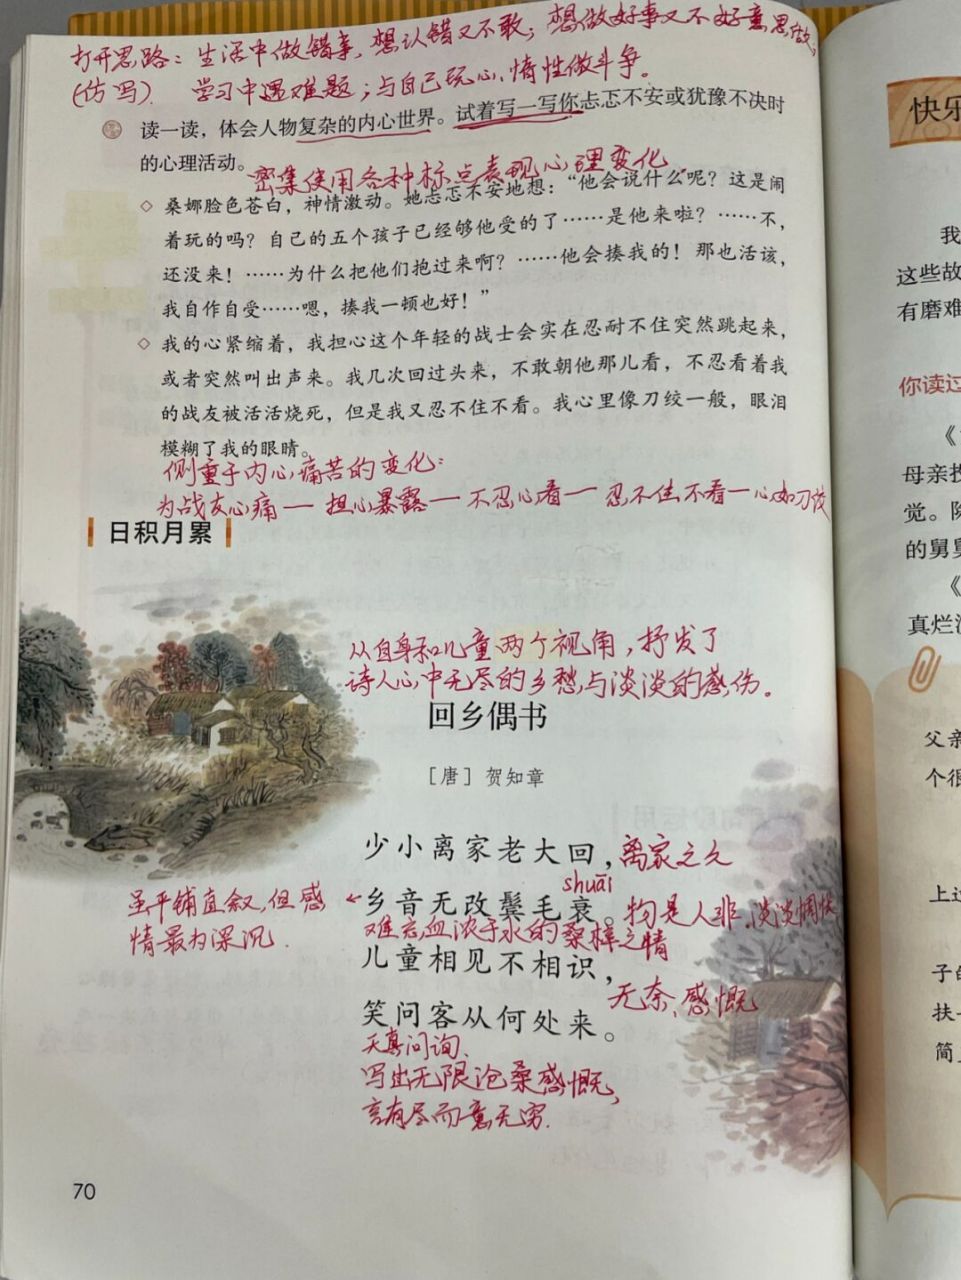 打开思路：生活中做错事，想认错又不敢；想做好事又不好意思做；
(仿写) 学习中遇难题；与自己玩心、惰性做斗争。
读一读，体会人物复杂的内心世界。试着写一写你忐忑不安或犹豫不决时
的心理活动。
密集使用各种标点表现心理变化
◇ 桑娜脸色苍白，神情激动。她忐忑不安地想：“他会说什么呢？这是闹
着玩的吗？自己的五个孩子已经够他受的了……是他来啦？……不，
还没来！……为什么把他们抱过来啊？……他会揍我的！那也活该，
我自作自受……嗯，揍我一顿也好！”
◇ 我的心紧缩着，我担心这个年轻的战士会实在忍耐不住突然跳起来，
或者突然叫出声来。我几次回过头来，不敢朝他那儿看，不忍看着我
的战友被活活烧死，但是我又忍不住不看。我心里像刀绞一般，眼泪
模糊了我的眼睛。
侧重于内心痛苦的变化：
为战友心痛—担心暴露—不忍心看—忍不住不看—心如刀绞
日积月累
从自身和儿童两个视角，抒发了
诗人心中无尽的乡愁与淡淡的感伤。
回乡偶书
［唐］贺知章
少小离家老大回，离家之久
shuāi
乡音无改鬓毛衰。物是人非，淡淡惆怅
虽平铺直叙，但感
情最为深沉.
难忘血浓于水的桑梓之情
儿童相见不相识，
无奈、感慨
笑问客从何处来。
天真问询、
写出无限沧桑感慨，
言有尽而意无穷.
70
快乐
我
这些故
有磨难
你读过
《
母亲投
觉。
的舅舅
《
真烂漫
父亲
个很
上过
子的
扶
简